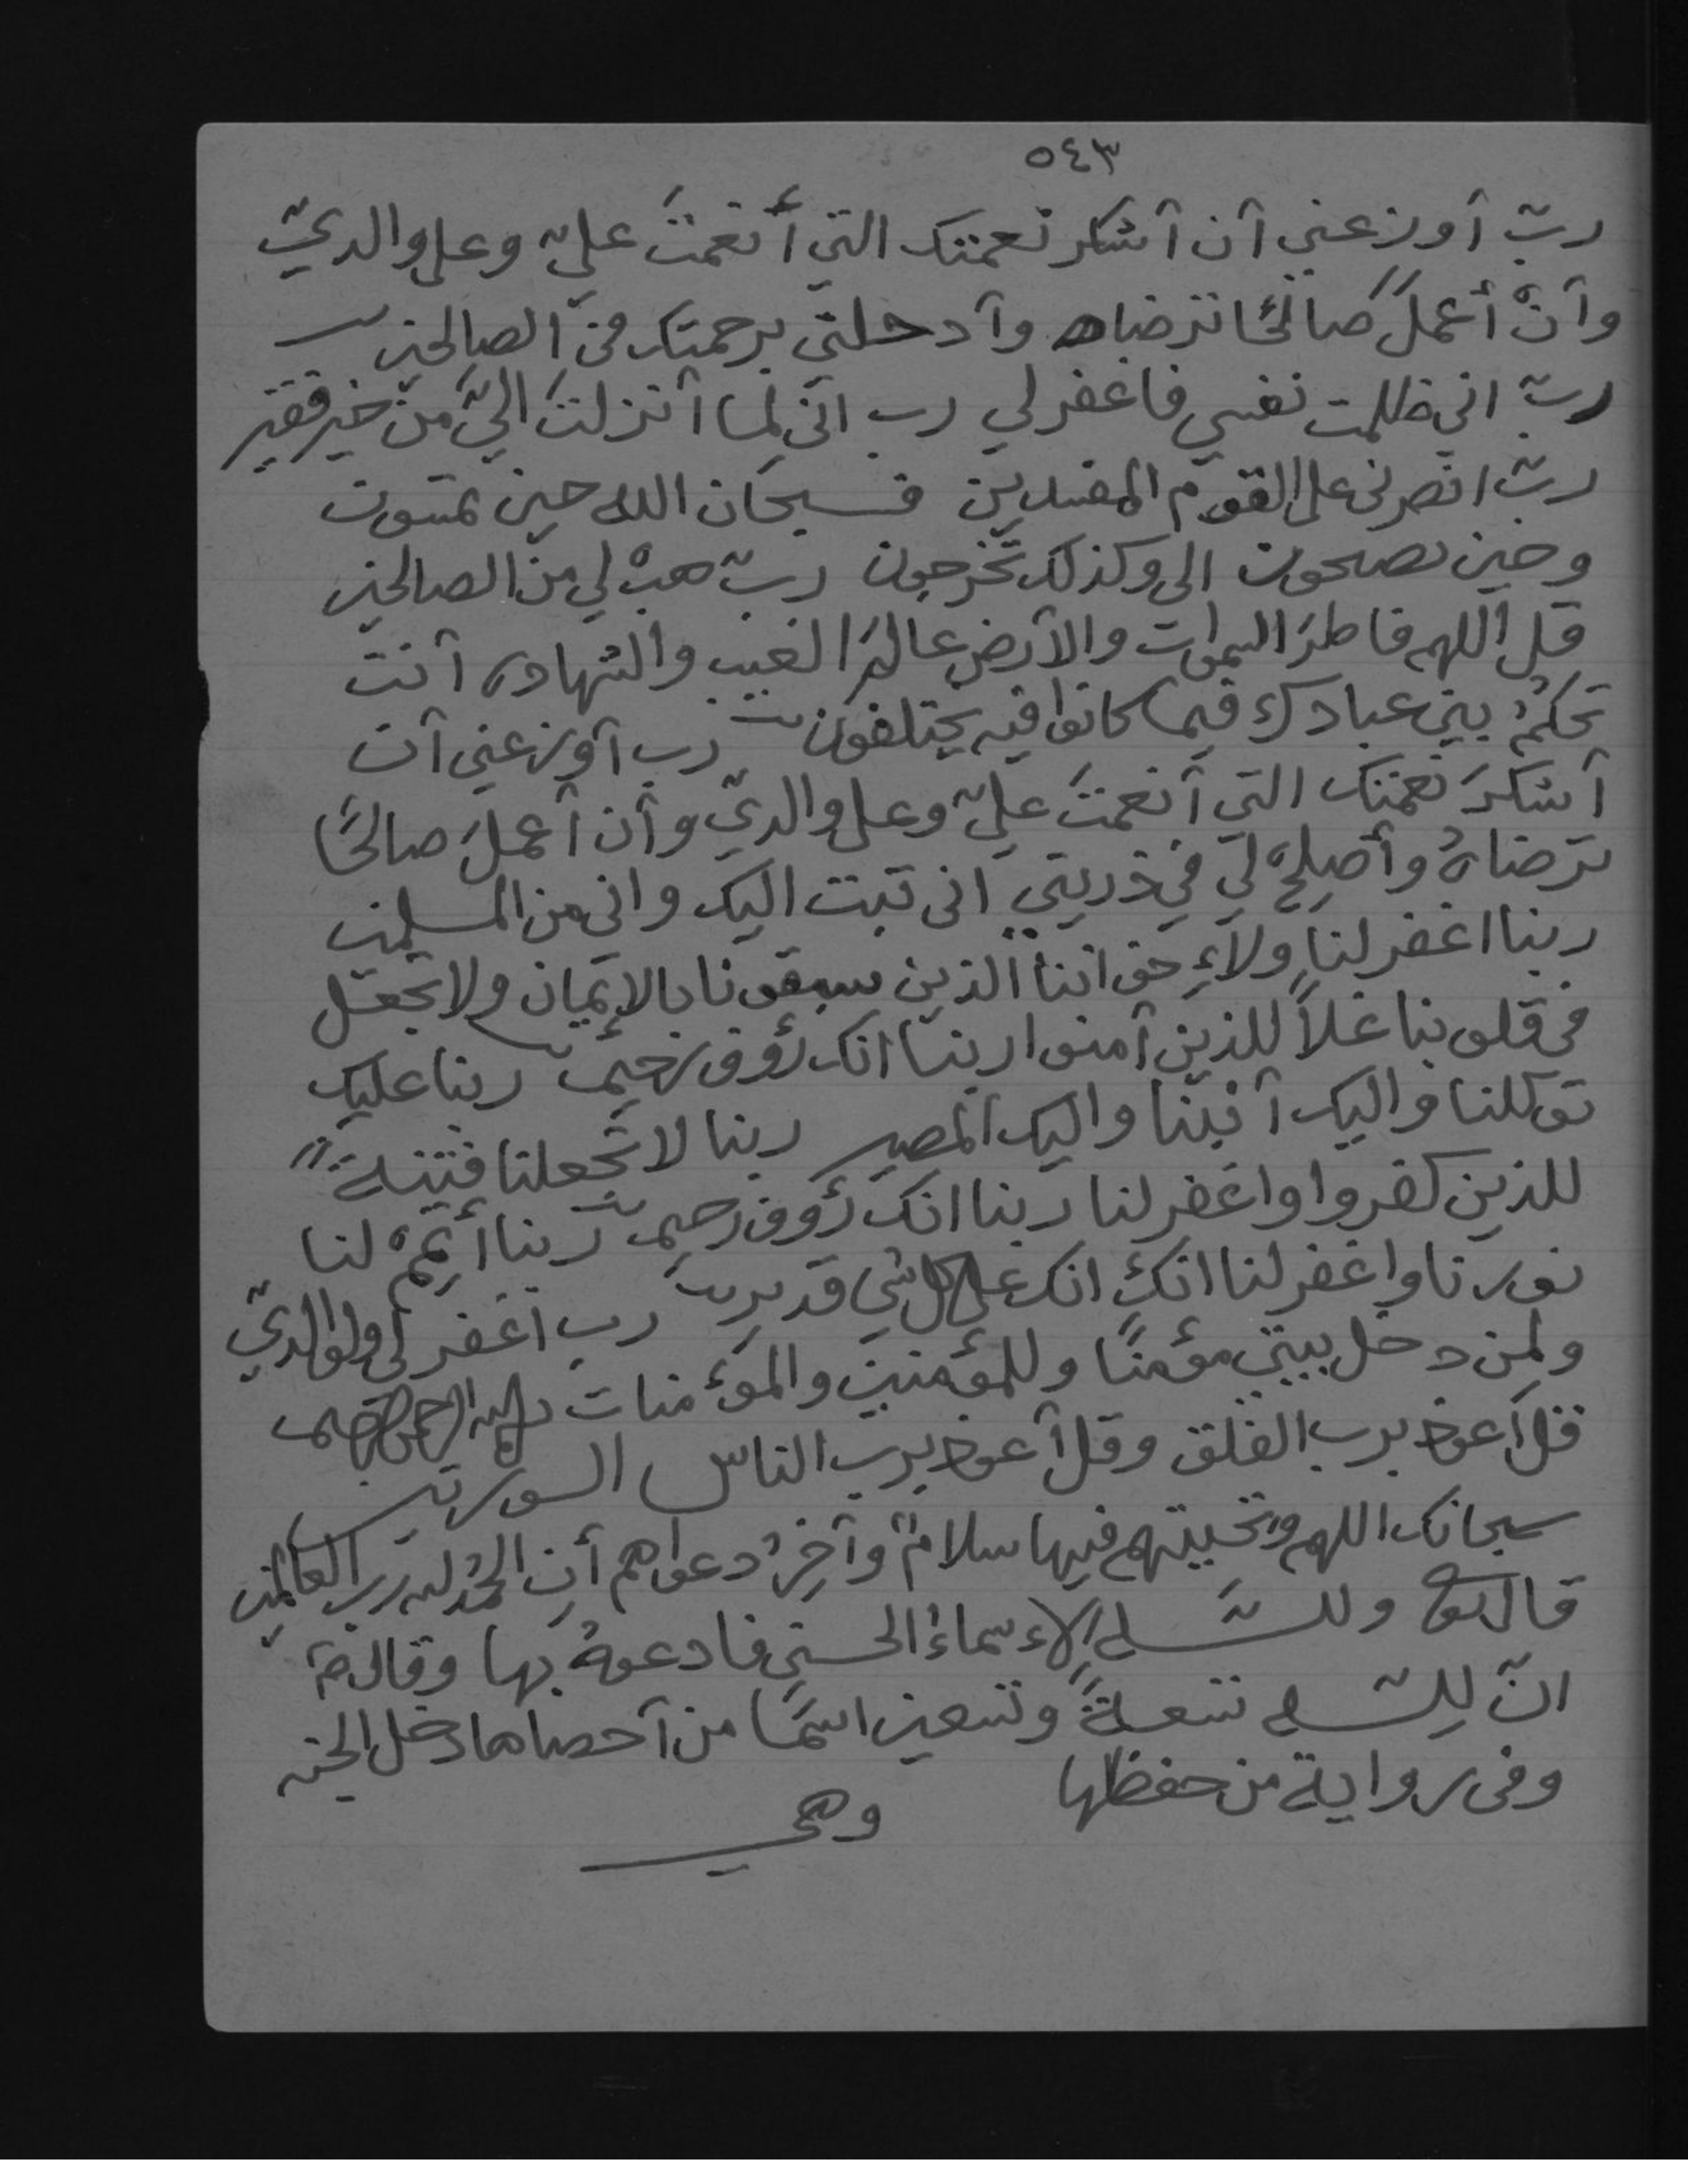 ٥٤٣
ربّ أوزعني أن أشكر نعمتك التي أنعمتَ عليّ وعلى والديّ
وأنْ أعملَ صالحًا ترضاه وأدخلني برحمتك في الصالحين
ربّ اني ظلمت نفسي فاغفر لي رب اني لما أنزلتَ اليَّ من خير فقير
ربّ انصرنى على القوم المفسدين فسبحان الله حين تمسون
وحين تصبحون الى وكذلك تخرجون ربّ هبْ لي من الصالحين
قل اللهم فاطرَ السموات والأرض عالمَ الغيب والشهادة أنت
تحكمُ بين عبادك فيما كانوا فيه يختلفون رب أوزعني أن
أشكرَ نعمتك التي أنعمتَ عليّ وعلى والديّ وأن أعملَ صالحًا
ترضاهُ وأصلحْ لي في ذريتي انى تبت اليك وانى من المسلمين
ربنا اغفر لنا ولإِخواننا الذين سبقونا بالإيمان ولا تجعل
فى قلوبنا غلاً للذين آمنوا ربنا انك رؤوف رحيم ربنا عليك
توكلنا واليك أنبنا واليك المصير ربنا لا تجعلنا فتنةً
للذين كفروا واغفر لنا ربنا انك رؤوف رحيم ربنا أتممْ لنا
نورنا واغفر لنا انك انك على كل شي قدير رب اغفر لى ولوالديّ
ولمن دخل بيتي مؤمنًا وللمؤمنين والمؤمنات بسم الله الرحمن الرحيم
قل أعوذ برب الفلق وقل أعوذ برب الناس السورتين
سبحانك اللهم وتحيتهم فيها سلامٌ وآخِرُ دعواهم أن الحمد لله رب العالمين
قال تع ولله الأسماءُ الحسنى فادعوهُ بها وقال
انّ لله تسعةً وتسعين اسمًا من أحصاها دخل الجنه
وفى رواية من حفظها وهي